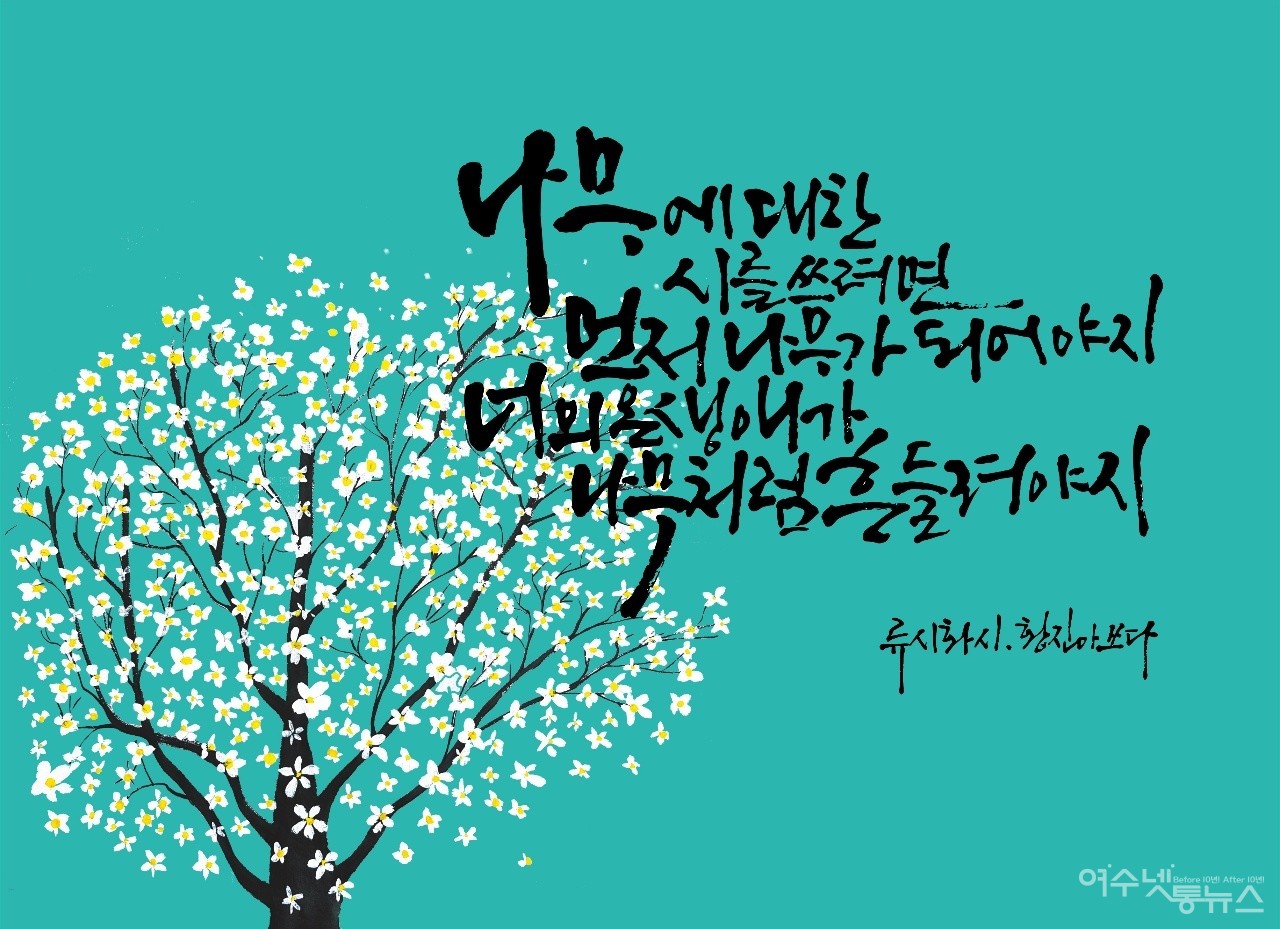 나무에 대한
시를 쓰려면
먼저 나무가 되어야지
너의 온 생애가
나무처럼 흔들려야지
류시화 시. 황진아 쓰다
여수넷통뉴스
Before 10년! After 10년!